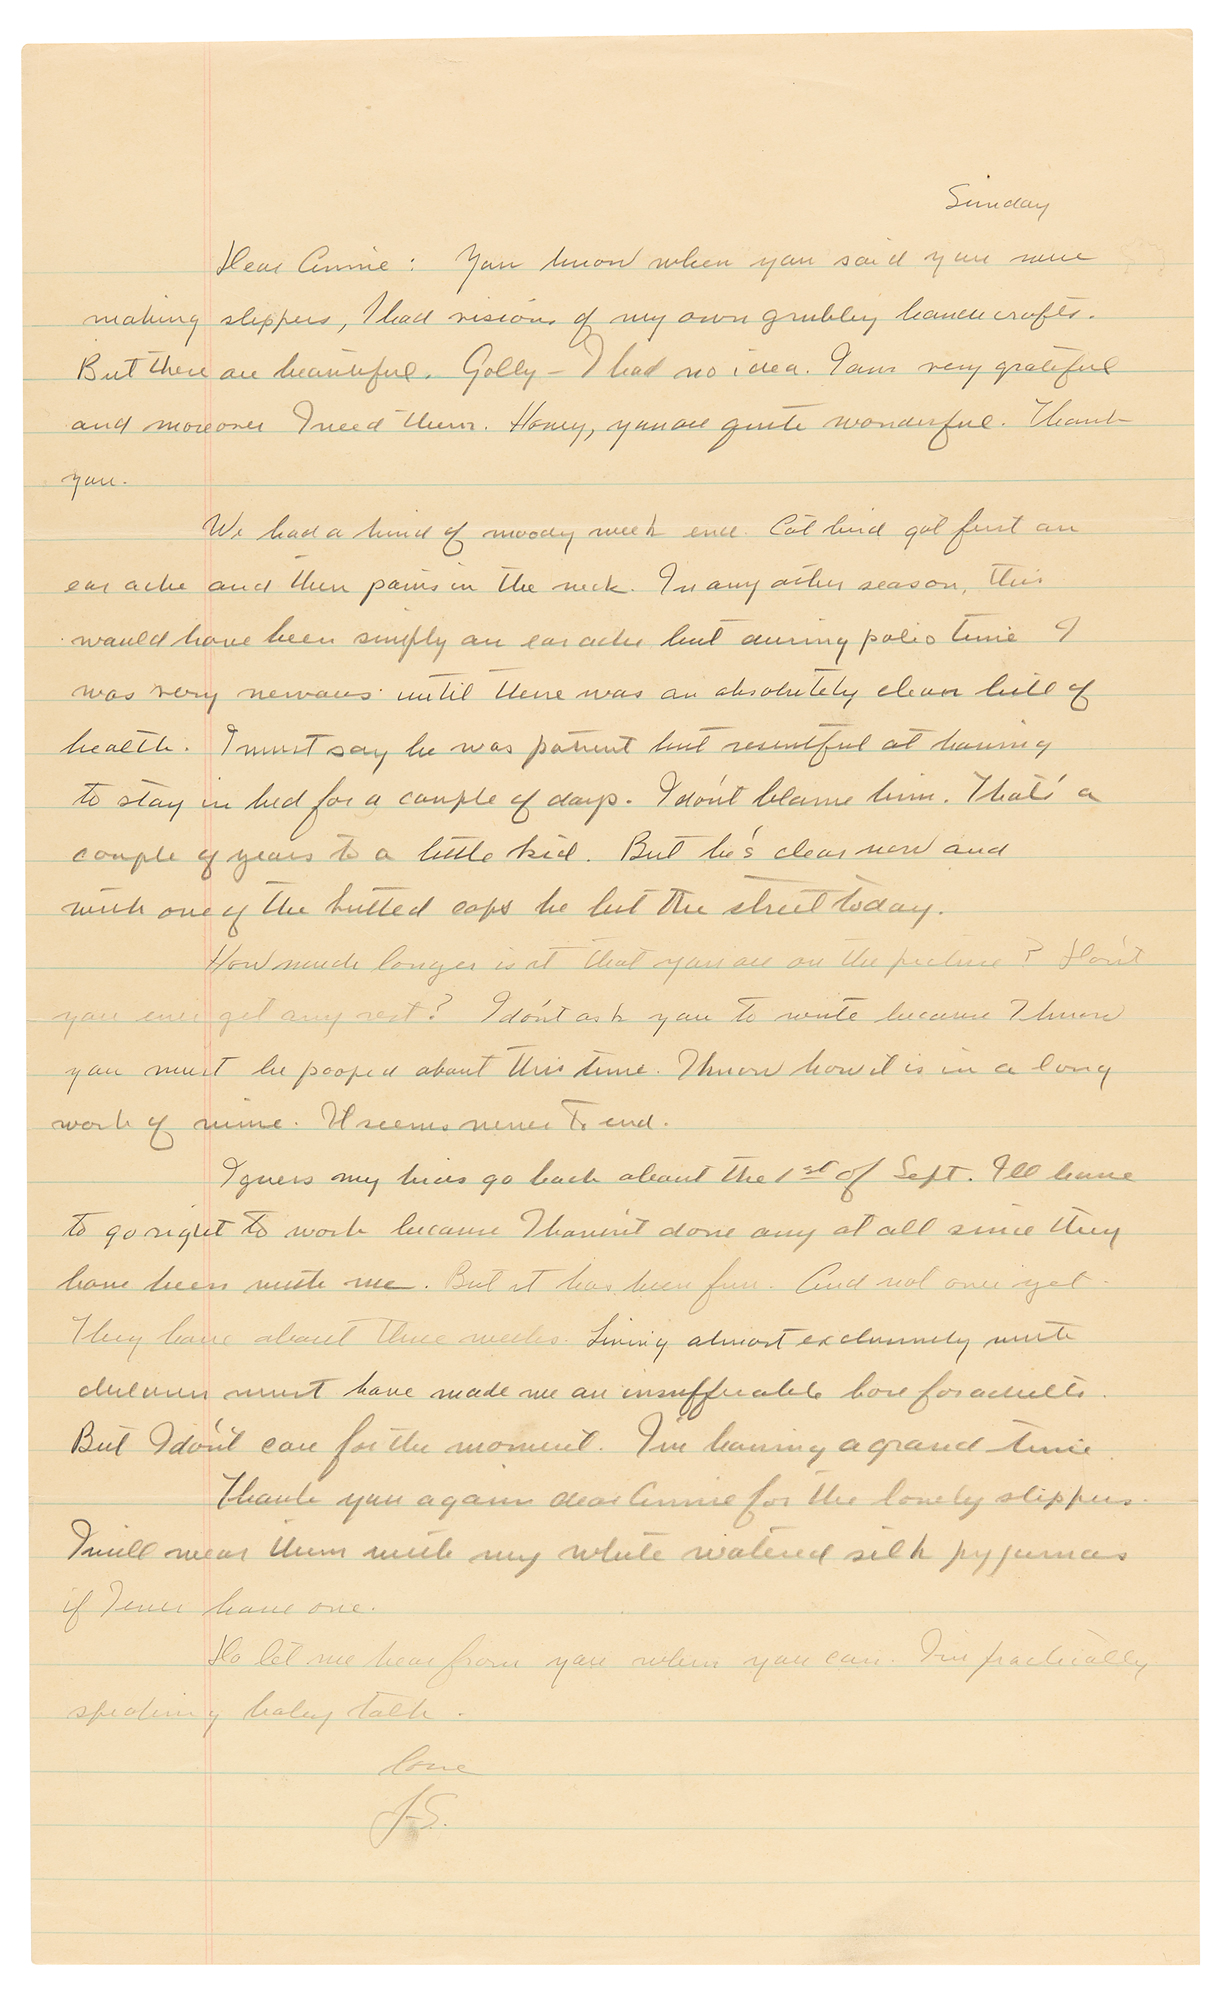 Sunday
Dear Annie: You know when you said you were
making slippers, I had visions of my own grubby handicrafts.
But these are beautiful. Golly - I had no idea. I am very grateful
and moreover I need them. Honey, you are quite wonderful. Thank
you.
We had a kind of moody week end. Cat bird got first an
ear ache and then pains in the neck. In any other season, this
would have been simply an ear ache but during polio time I
was very nervous until there was an absolutely clean bill of
health. I must say he was patient but resentful at having
to stay in bed for a couple of days. I don't blame him. That's a
couple of years to a little kid. But he's clear now and
with one of the knitted caps he hit the street today.
How much longer is it that you are on the picture? Don't
you ever get any rest? I don't ask you to write because I know
you must be pooped about this time. I know how it is in a long
work of mine. It seems never to end.
I guess my kids go back about the 1st of Sept. I'll have
to go right to work because I haven't done any at all since they
have been with me. But it has been fun. And not over yet.
They have about three weeks. Living almost exclusively with
children must have made me an insufferable bore for adults.
But I don't care for the moment. I'm having a grand time.
Thank you again dear Annie for the lovely slippers.
I will wear them with my white watered silk pyjamas
if I ever have one.
Do let me hear from you when you can. I'm practically
speaking baby talk.
love
J.S.